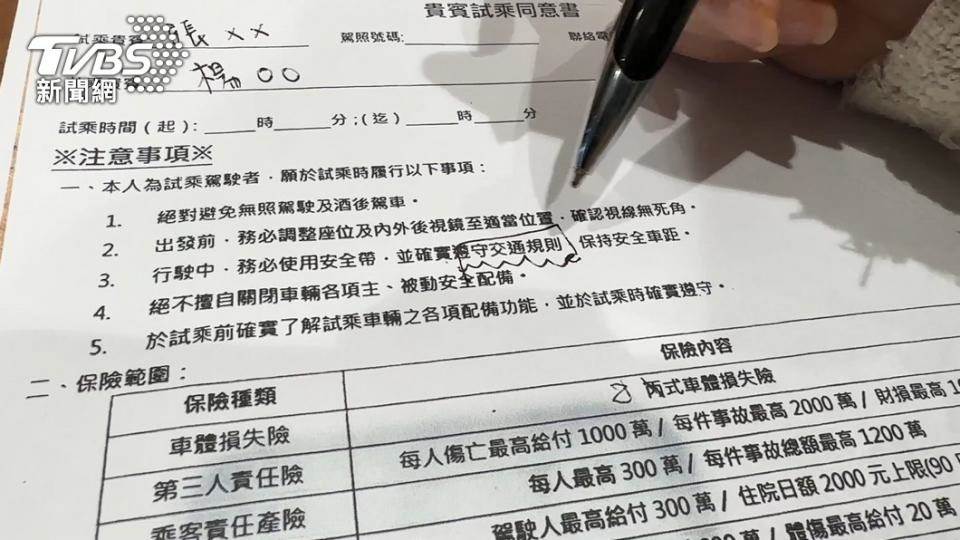 貴賓試乘同意書
TVBS
新聞網
試乘貴賓 張 ×× 駕照號碼: 聯絡電
楊 ○○
試乘時間(起): 時 分;(迄) 時 分
※注意事項※
一、本人為試乘駕駛者,願於試乘時履行以下事項:
1. 絕對避免無照駕駛及酒後駕車。
2. 出發前,務必調整座位及內外後視鏡至適當位置,確認視線無死角。
3. 行駛中,務必使用安全帶,並確實遵守交通規則,保持安全車距。
4. 絕不擅自關閉車輛各項主、被動安全配備。
5. 於試乘前確實了解試乘車輛之各項配備功能,並於試乘時確實遵守。
二、保險範圍:
保險種類 保險內容
車體損失險 丙式車體損失險
第三人責任險 每人傷亡最高給付 1000 萬 / 每件事故最高 2000 萬 / 財損最高
乘客責任產險 每人最高 300 萬 / 每件事故總額最高 1200 萬
駕駛人最高給付 300 萬 / 住院日額 2000 元上限(90
萬 / 體傷最高給付 20 萬